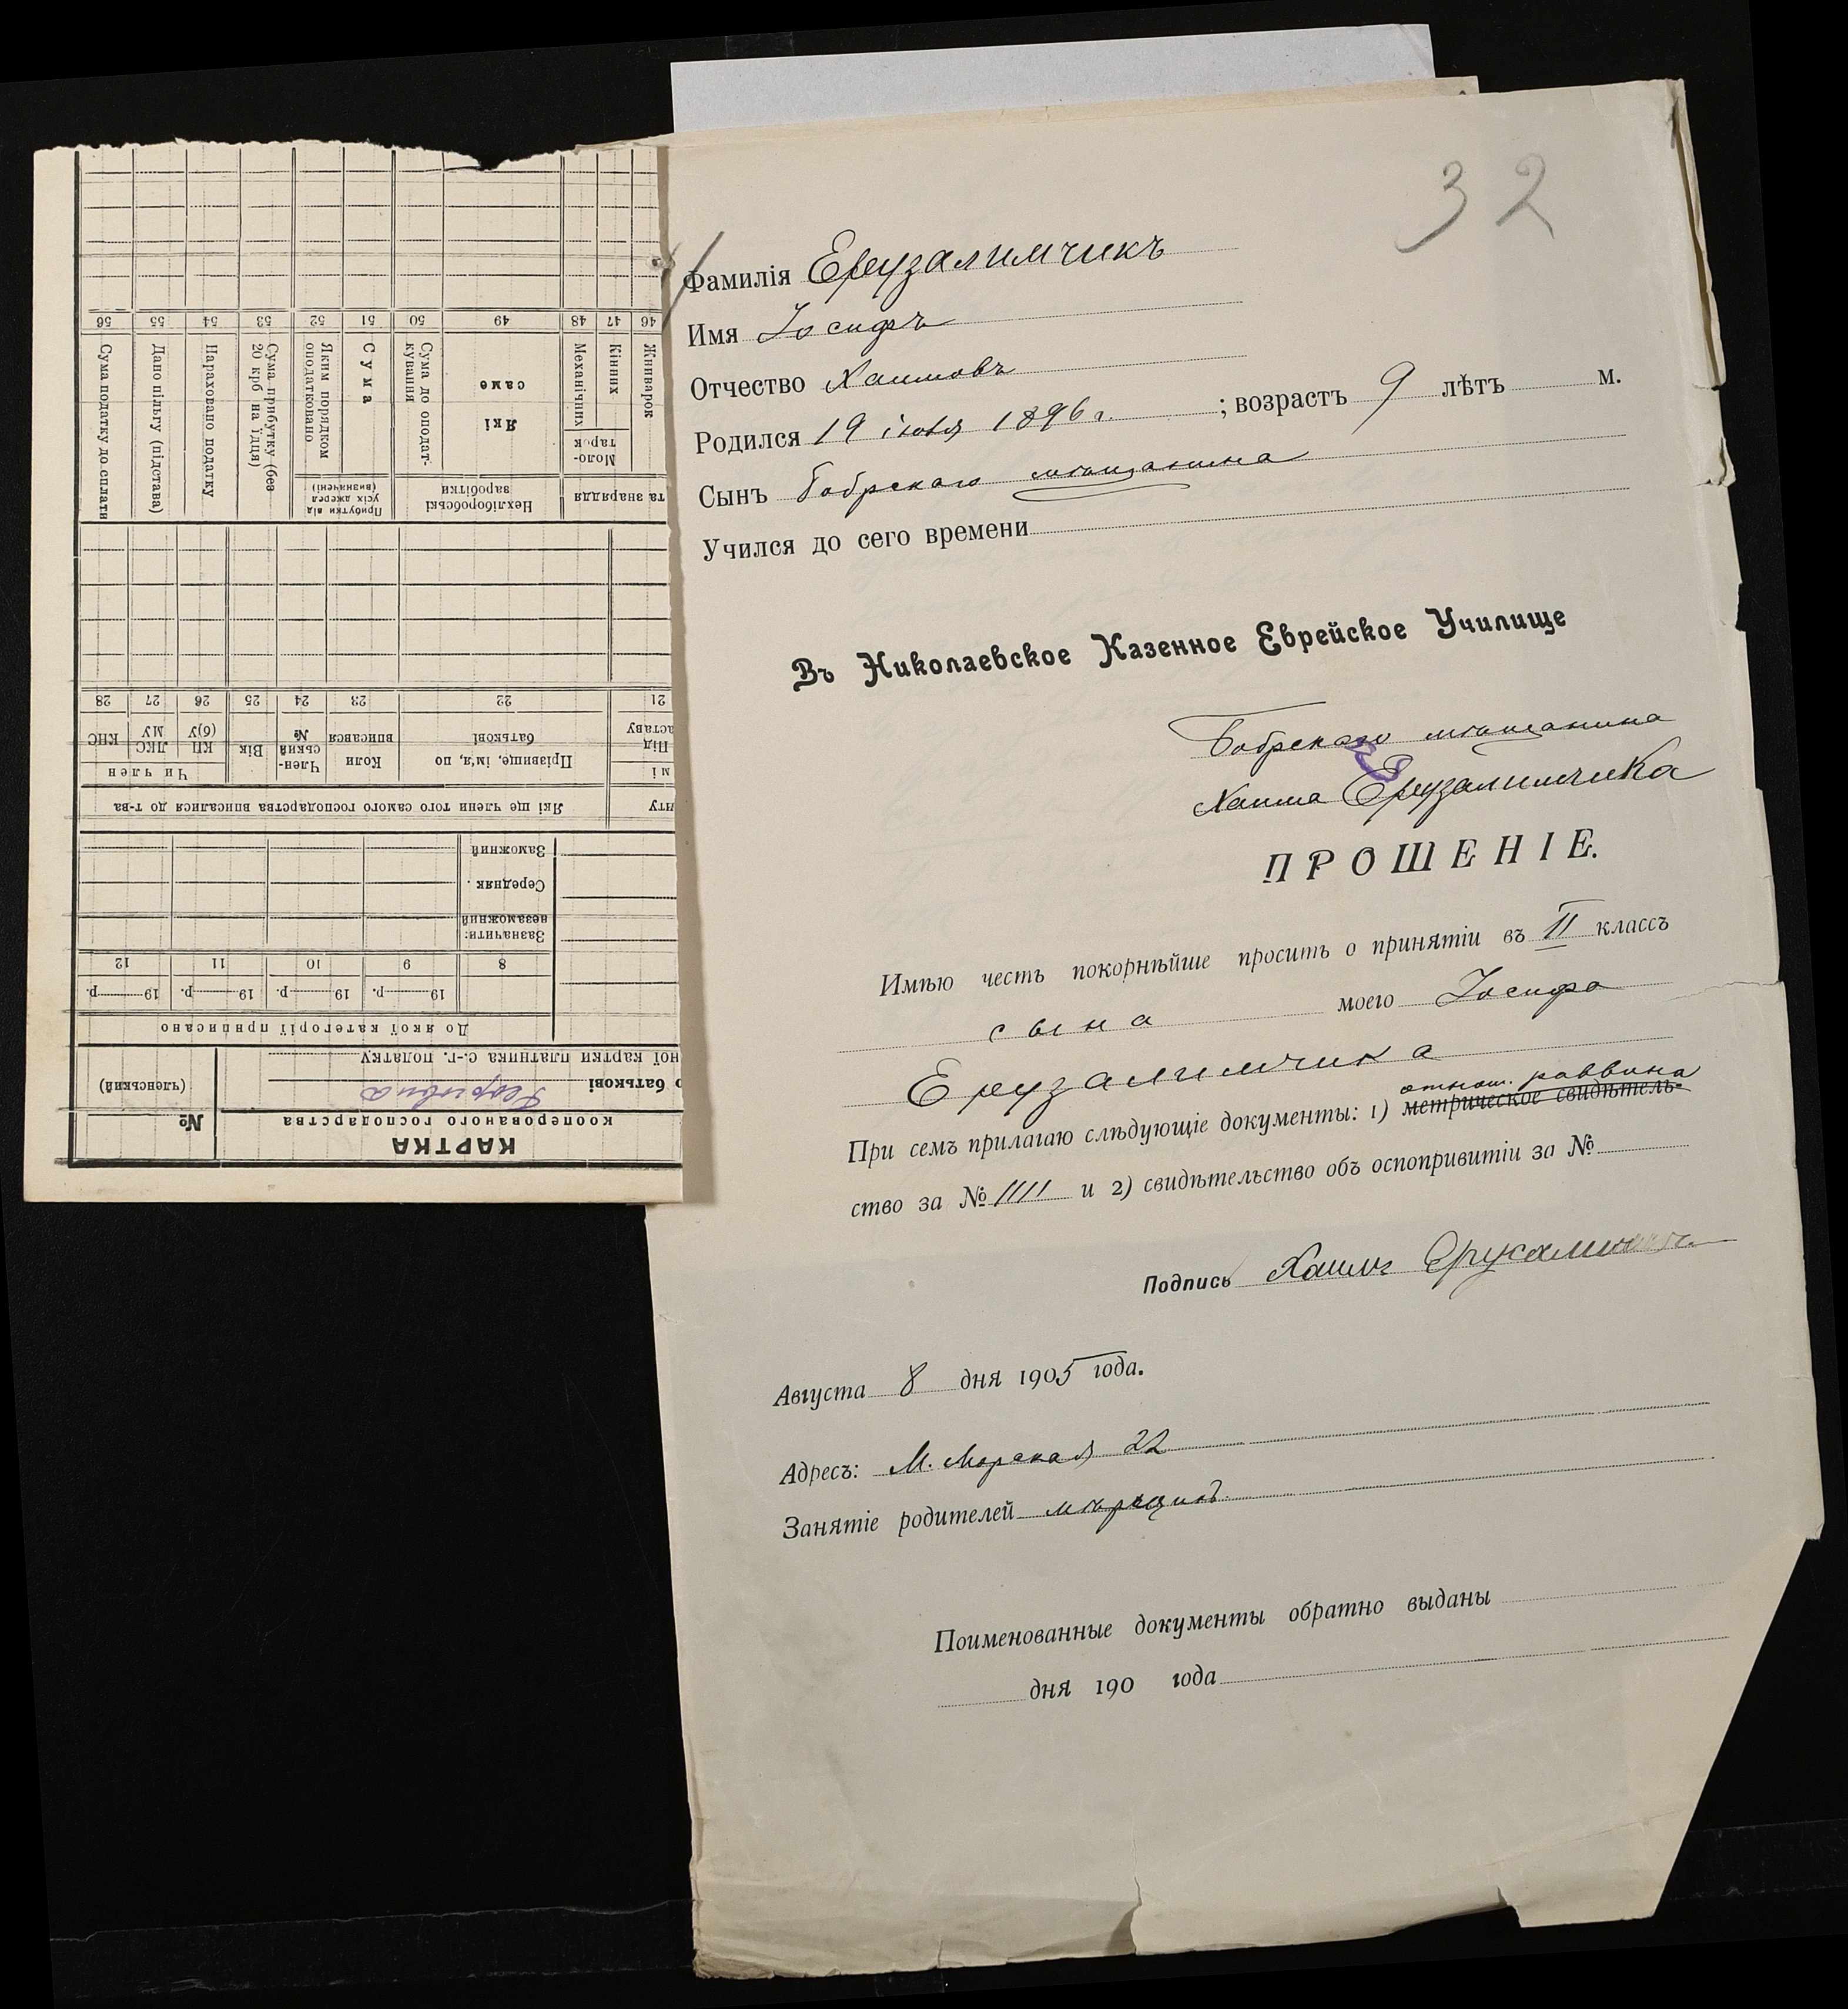 32
Фамилія Ерузалимчикъ
Имя Іосифъ
Отчество Хаимовъ
Родился 19 іюля 1896 г. ; возрастъ 9 лѣтъ м.
Сынъ Бобрскаго мѣщанина
Учился до сего времени
Въ Николаевское Казенное Еврейское Училище
Бобрскаго мѣщанина
Хаима Ерузалимчика
ПРОШЕНІЕ.
Имѣю честь покорнѣйше просить о принятіи въ II классъ
сына моего Іосифа
Ерузалимчика
отнош. раввина
При семъ прилагаю слѣдующіе документы: 1) метрическое свидѣтель-
ство за № 1111 и 2) свидѣтельство объ оспопривитіи за №
Подпись Хаимъ
Августа 8 дня 1905 года.
Адресъ: М. Морская 22
Занятіе родителей
Поименованные документы обратно выданы
дня 190 года
КАРТКА
кооперованого господарства
№
(членський)
о батькові
ної картки платника с.-г. податку
До якої категорії приписано
19 р. 19 р. 19 р. 19 р.
8 9 10 11 12
Зазначити:
незаможний
Середняк
Заможний
нту
Які ще члени того самого господарства вписалися до т-ва
мі
Під
аставу
Прізвище, ім'я, по
батькові
Коли
вписався
Член-
ський
№
Вік
Чи член
КП
(б)У
ЛКС
МУ
КНС
21 22 23 24 25 26 27 28
та знаряддя
Нехліборобські
заробітки
Прибутки від
усіх джерел
(визначені)
Жниварок
Моло-
тарок
Кінних
Механічних
Які
саме
Сума до оподат-
кування
Сума
Яким порядком
оподатковано
Сума прибутку (без
20 крб на їдця)
Нараховано податку
Дано пільгу (підстава)
Сума податку до сплати
46 47 48 49 50 51 52 53 54 55 56